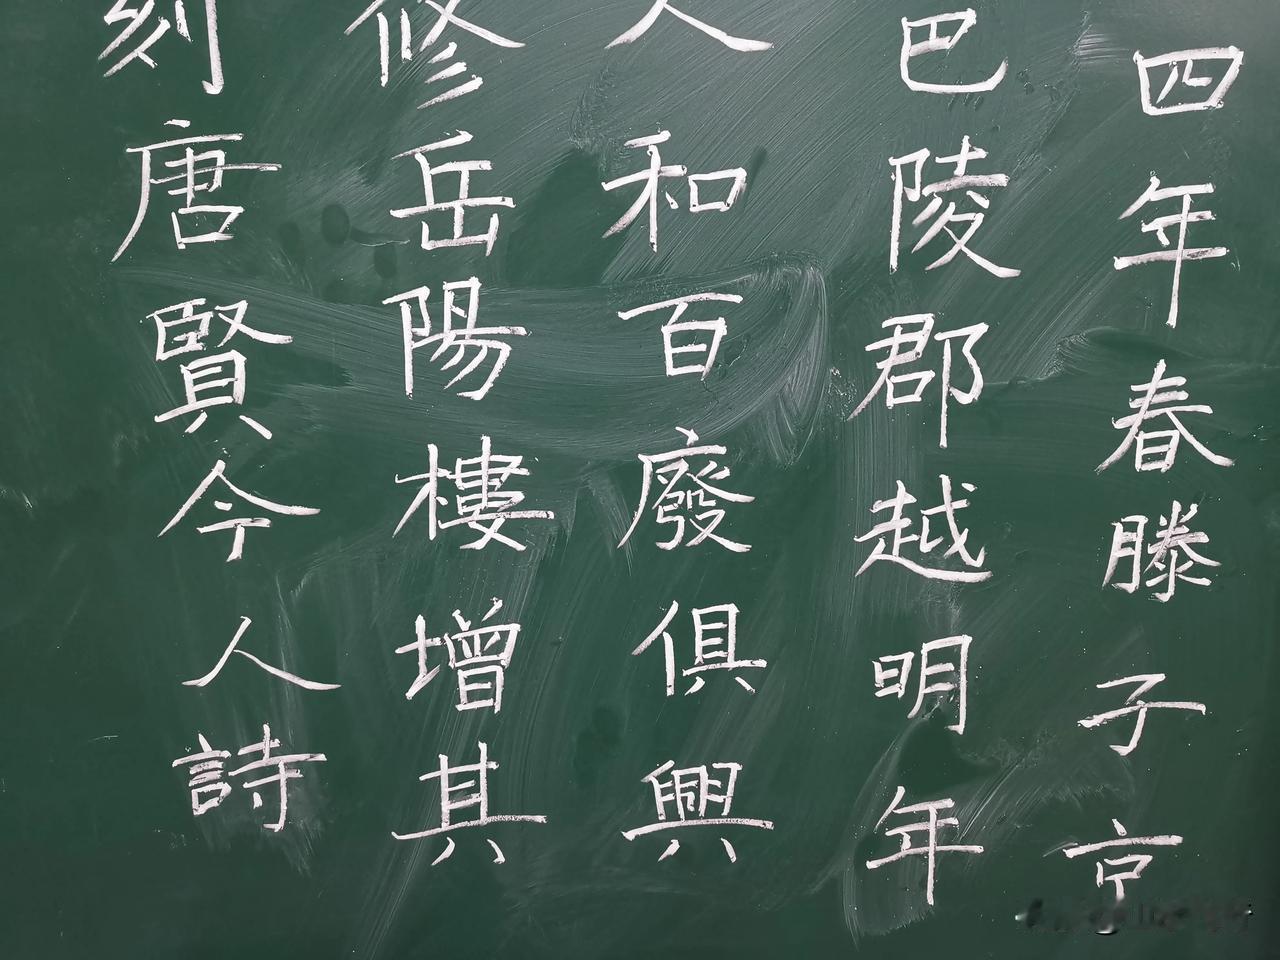 四年春滕子京
巴陵郡越明年
人和百廢俱興
修岳陽樓增其
刻唐賢今人詩